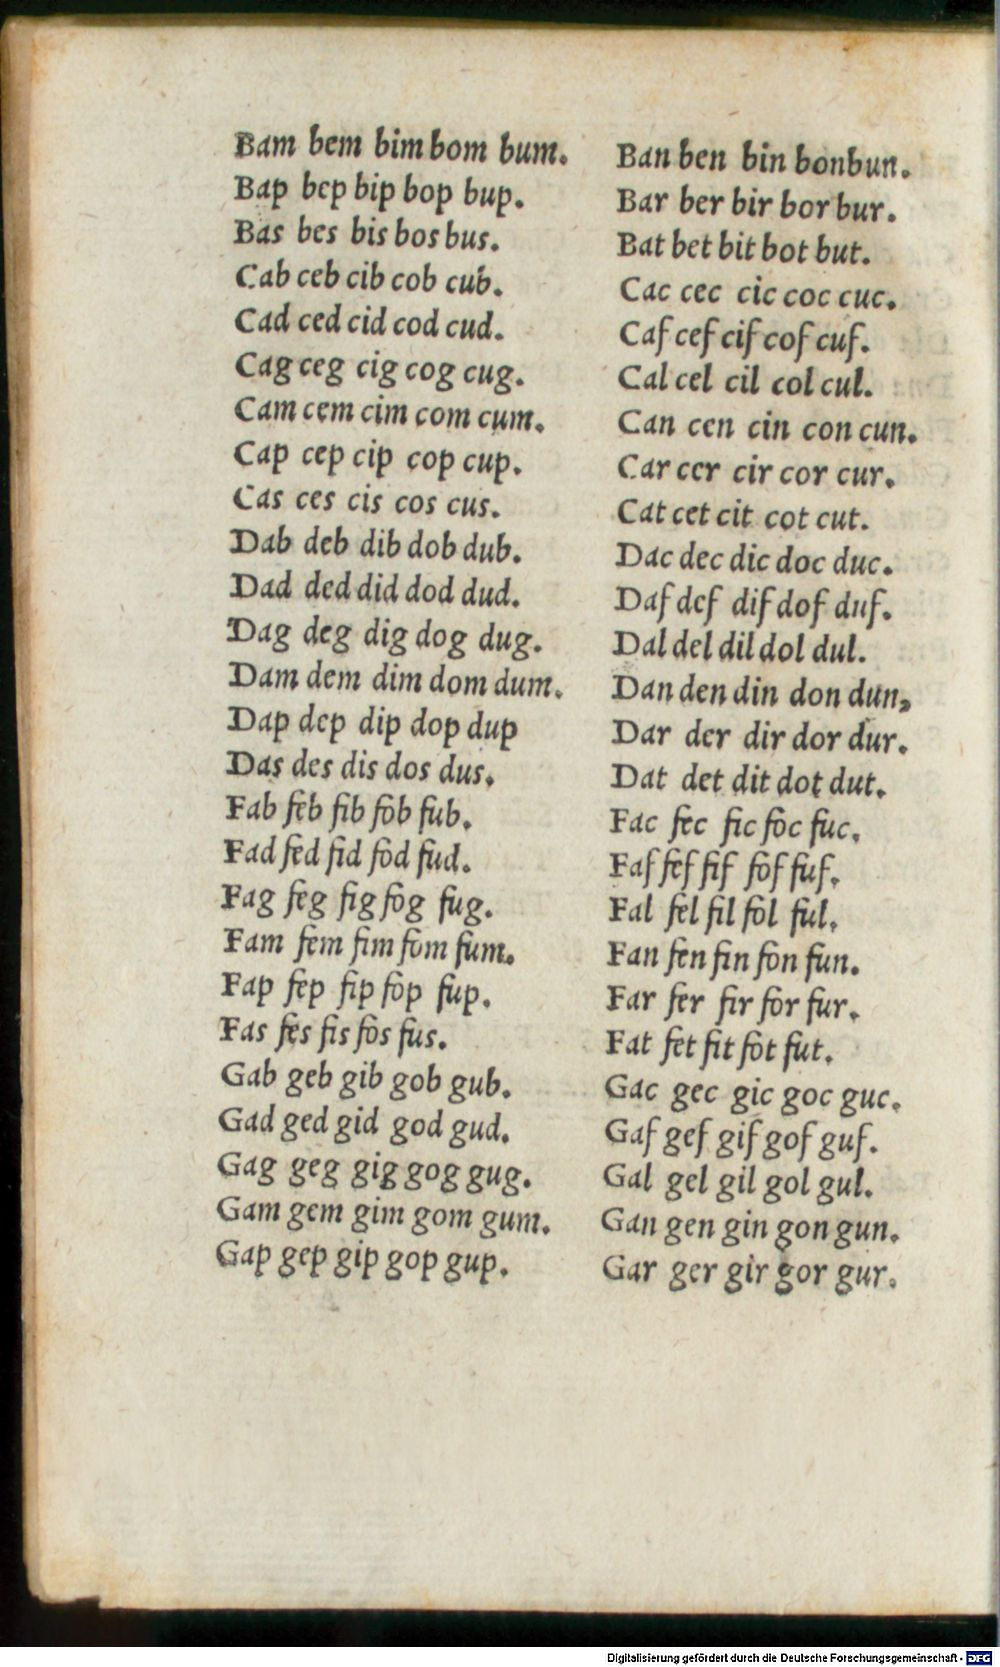 Bam bem bim bom bum. Ban ben bin bonbun.
Bap bep bip bop bup. Bar ber bir bor bur.
Bas bes bis bos bus. Bat bet bit bot but.
Cab ceb cib cob cub. Cac cec cic coc cuc.
Cad ced cid cod cud. Caf cef cif cof cuf.
Cag ceg cig cog cug. Cal cel cil col cul.
Cam cem cim com cum. Can cen cin con cun.
Cap cep cip cop cup. Car cer cir cor cur.
Cas ces cis cos cus. Cat cet cit cot cut.
Dab deb dib dob dub. Dac dec dic doc duc.
Dad ded did dod dud. Daf def dif dof duf.
Dag deg dig dog dug. Dal del dil dol dul.
Dam dem dim dom dum. Dan den din don dun.
Dap dep dip dop dup Dar der dir dor dur.
Das des dis dos dus. Dat det dit dot dut.
Fab feb fib fob fub. Fac fec fic foc fuc.
Fad fed fid fod fud. Faf fef fif fof fuf.
Fag feg fig fog fug. Fal fel fil fol ful.
Fam fem fim fom fum. Fan fen fin fon fun.
Fap fep fip fop fup. Far fer fir for fur.
Fas fes fis fos fus. Fat fet fit fot fut.
Gab geb gib gob gub. Gac gec gic goc guc.
Gad ged gid god gud. Gaf gef gif gof guf.
Gag geg gig gog gug. Gal gel gil gol gul.
Gam gem gim gom gum. Gan gen gin gon gun.
Gap gep gip gop gup. Gar ger gir gor gur.
Digitalisierung gefördert durch die Deutsche Forschungsgemeinschaft - DFG